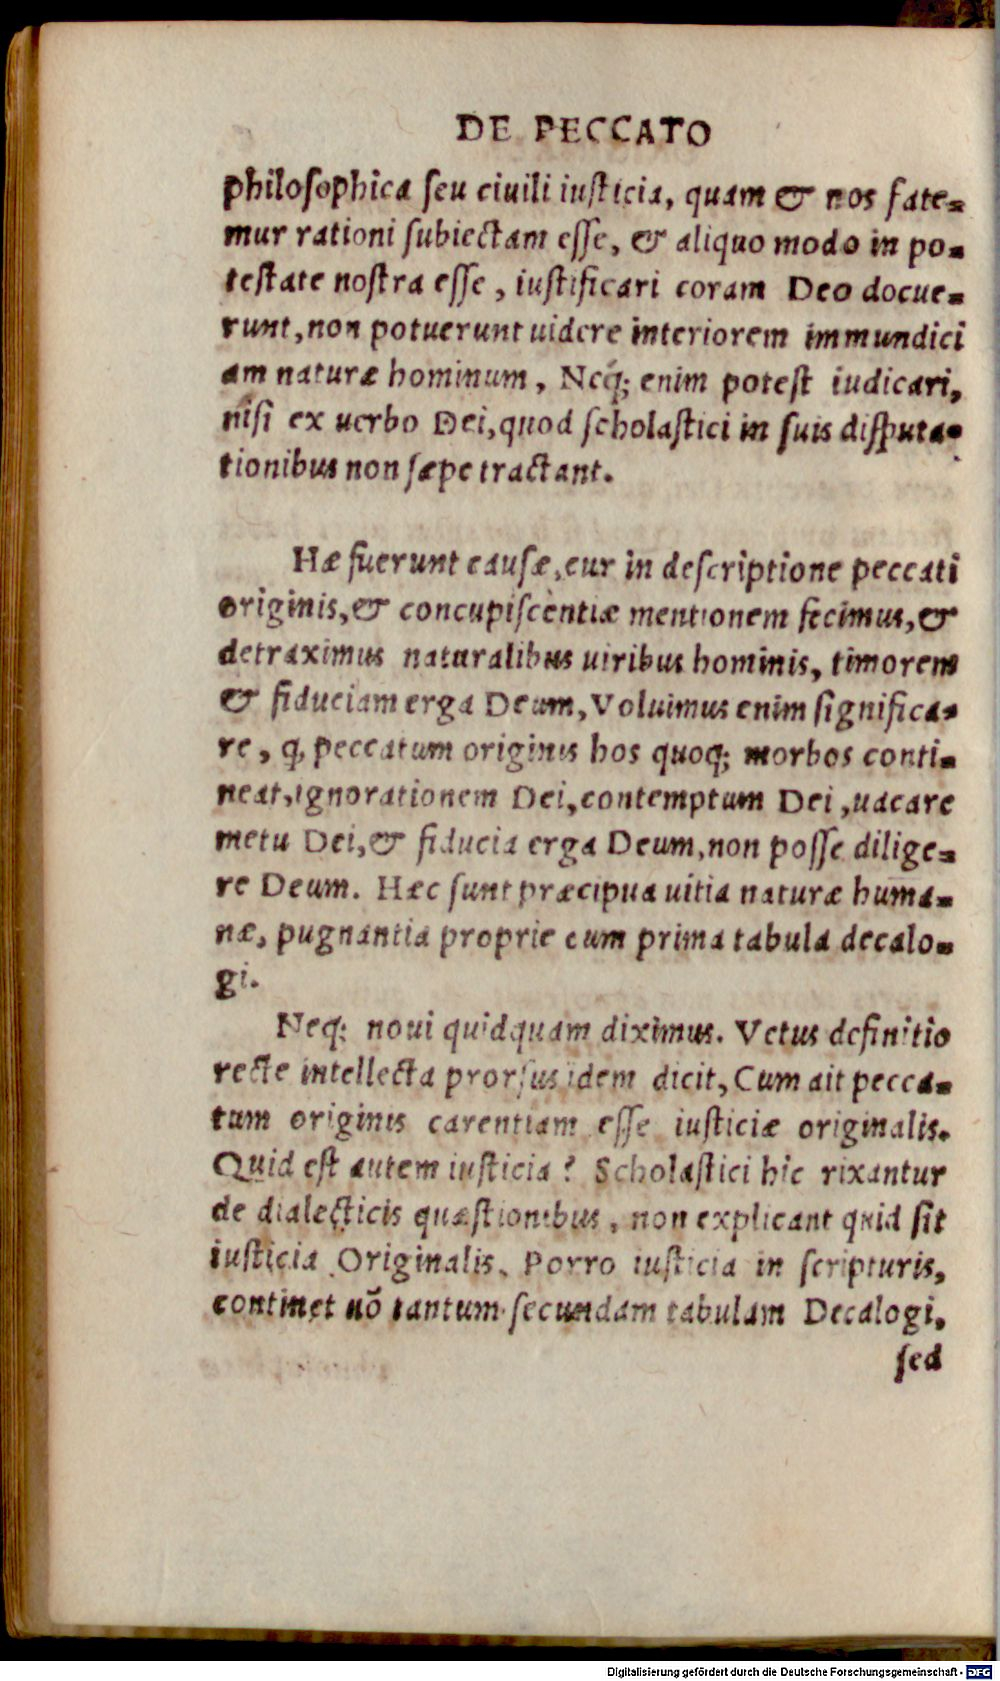 DE PECCATO
philoſophica ſeu ciuili iuſticia, quam & nos fate=
mur rationi ſubiectam eſſe, & aliquo modo in po=
teſtate noſtra eſſe, iuſtificari coram Deo docue=
runt, non potuerunt uidere interiorem immundici
am naturæ hominum, Neq́; enim poteſt iudicari,
niſi ex uerbo Dei, quod ſcholaſtici in ſuis diſputa=
tionibus non ſæpe tractant.
Hæ fuerunt cauſæ, cur in deſcriptione peccati
originis, & concupiſcentiæ mentionem fecimus, &
detraximus naturalibus uiribus hominis, timorem
& fiduciam erga Deum, Voluimus enim ſignifica=
re, q, peccatum originis hos quoq; morbos conti=
neat, ignorationem Dei, contemptum Dei, uacare
metu Dei, & fiducia erga Deum, non poſſe dilige=
re Deum. Hæc ſunt præcipua uitia naturæ huma=
næ, pugnantia proprie cum prima tabula decalo=
gi.
Neq; noui quidquam diximus. Vetus definitio
recte intellecta prorſus idem dicit, Cum ait pecca=
tum originis carentiam eſſe iuſticiæ originalis.
Quid eſt autem iuſticia? Scholaſtici hic rixantur
de dialecticis quæſtionibus, non explicant quid ſit
iuſticia Originalis. Porro iuſticia in ſcripturis,
continet nō tantum ſecundam tabulam Decalogi,
ſed
Digitalisierung gefördert durch die Deutsche Forschungsgemeinschaft - DFG